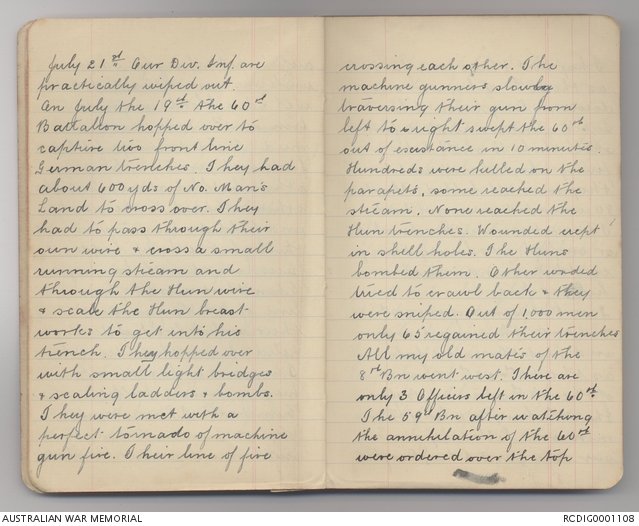 July 21st Our Div. Inf. are
practically wiped out.
On July the 19rd the 60rd
Battalion hopped over to
capture two front line
German trenches. They had
about 600yds of No. Man's
Land to cross over. They
had to pass through their
own wire & cross a small
running stream and
through the Hun wire
& scale the Hun breast-
works to get into his
trench. They hopped over
with small light bridges
& scaling ladders & bombs.
They were met with a
perfect tornado of machine
gun fire. Their line of fire
crossing each other. The
machine gunners slowly
traversing their gun from
left to right swept the 60rd
out of existance in 10 minutes.
Hundreds were killed on the
parapets, some reached the
stream. None reached the
Hun trenches. Wounded crept
in shell holes. The Huns
bombed them. Other wouded
tried to crawl back & they
were sniped. Out of 1,000 men
only 65 regained their trenches
All my old mates of the
8rd Bn went west. There are
only 3 Officers left in the 60rd.
The 59rd Bn after watching
the annihilation of the 60rd
were ordered over the top
AUSTRALIAN WAR MEMORIAL
RCDIG0001108